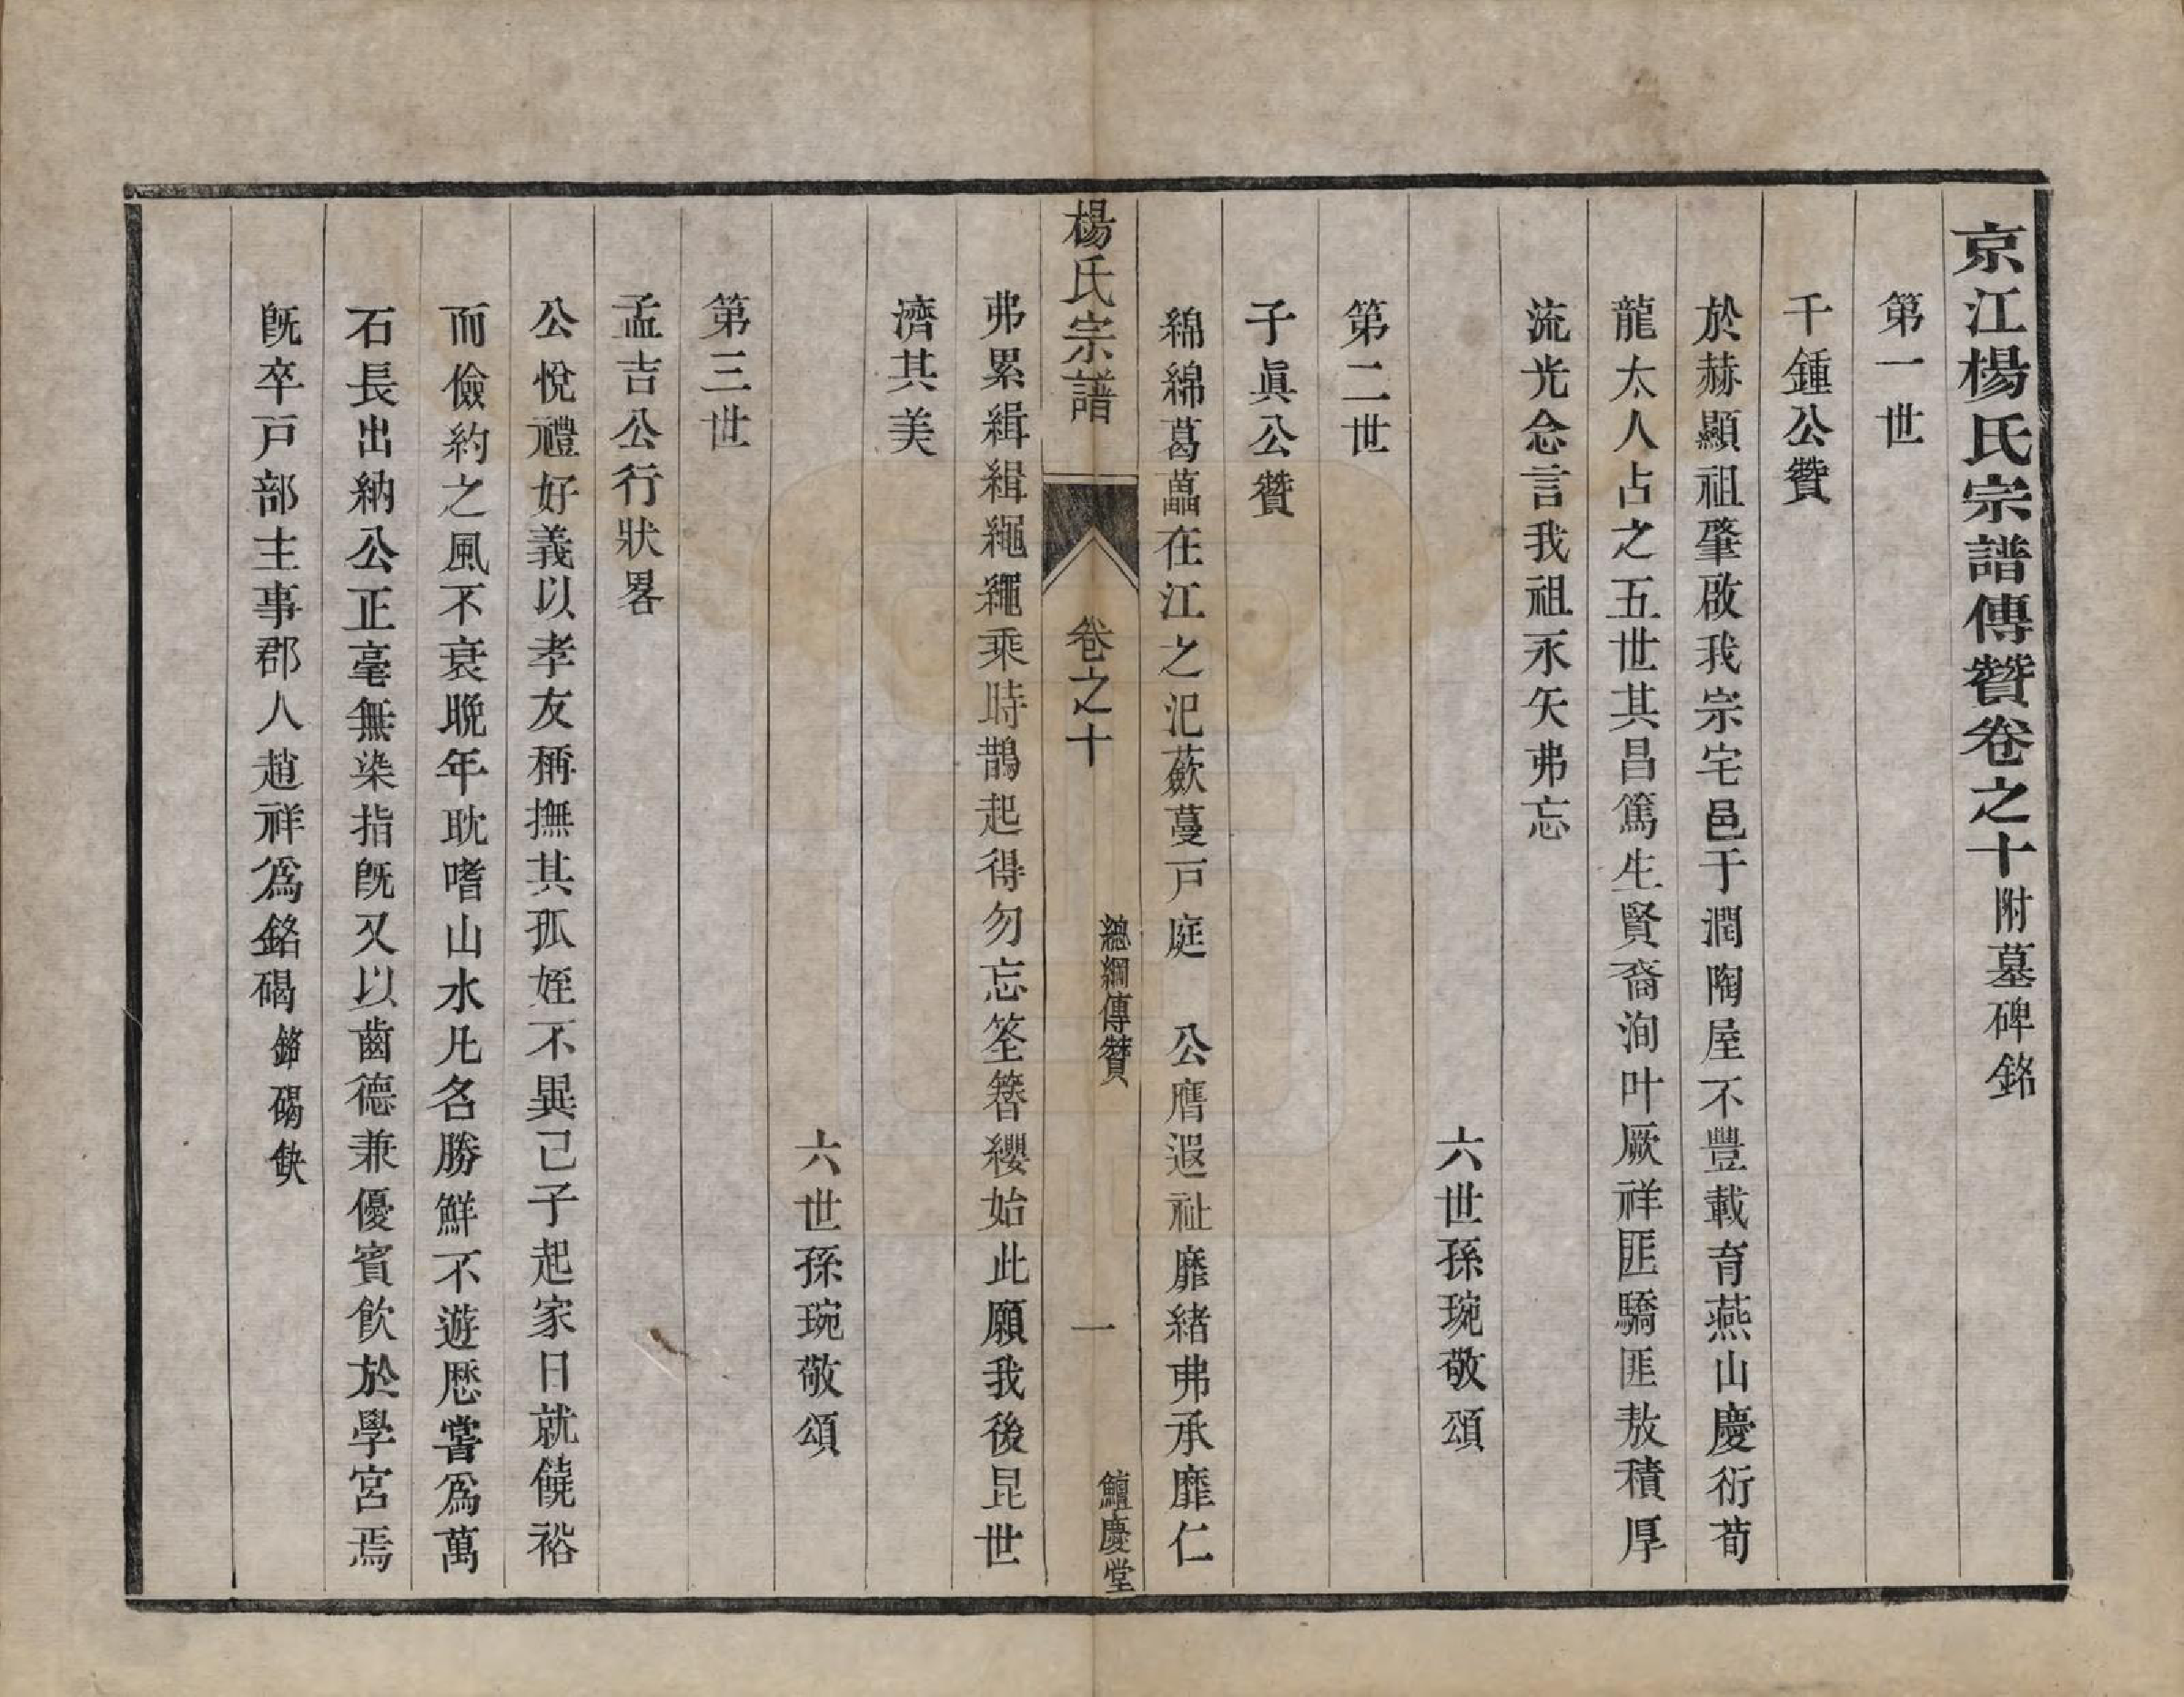 京江楊氏宗譜傳贊卷之十附墓碑銘
第一世
千鍾公贊
於赫顯祖肇啟我宗宅邑于潤陶屋不豐載育燕山慶衍荀
龍太人占之五世其昌篤生賢裔洵叶厥祥匪驕匪敖積厚
流光念言我祖永矢弗忘
六世孫琬敬頌
第二世
子眞公贊
綿綿葛藟在江之汜蘞蔓戸庭　公膺遐祉靡緒弗承靡仁
楊氏宗譜
卷之十
總綱傳贊
一
鱣慶堂
弗累緝緝繩繩乘時鵲起得勿忘筌簪纓始此願我後昆世
濟其美
六世孫琬敬頌
第三世
孟吉公行狀畧
公悅禮好義以孝友稱撫其孤姪不異己子起家日就饒裕
而儉約之風不衰晚年耽嗜山水凡名勝鮮不遊歷嘗爲萬
石長出納公正毫無染指旣又以齒德兼優賓飮於學宮焉
旣卒戸部主事郡人趙祥爲銘碣銘碣缺